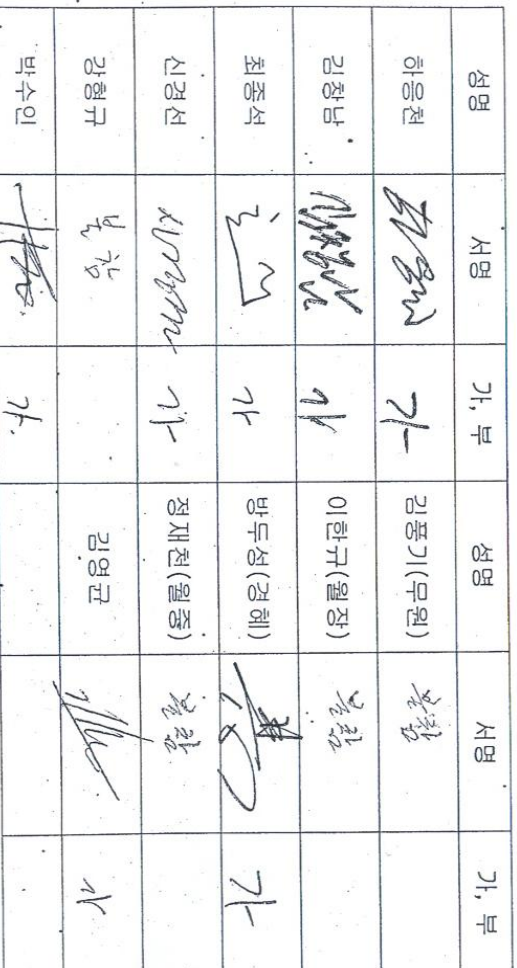 성명 서명 가, 부 성명 서명 가, 부
하응천 가 김풍기(무원) 불참
김창남 가 이한규(월장) 불참
최종석 가 방두성(경혜) 가
신경선 신경선 가 정재천(월중) 불참
강형규 불참 김영균 가
박수인 가.